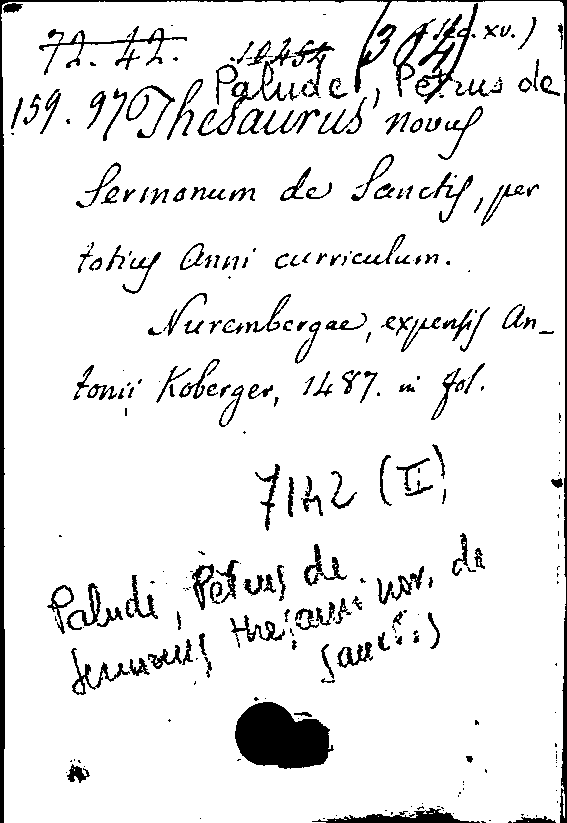 72. 42. (314) (Sec. XV.)
Palude, Petrus de
159.97 Thesaurus novus
Sermonum de Sanctis, per
totius Anni curriculum.
Nurembergae, expensis An-
tonii Koberger, 1487. in fol.
7142 (II)
Paludi, Petrus de
sermones thesauri nov. de
sanctis